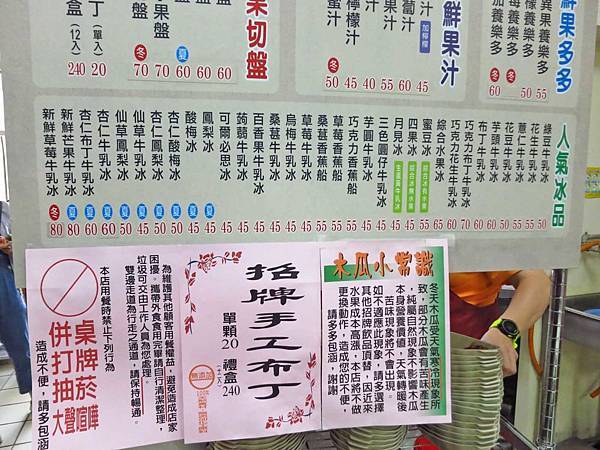 鮮果多多
異果養樂多
檸養樂多
莓養樂多
加養樂多
冬 60 50 55
鮮果汁
汁 加檸檬
葡汁
果汁
檸檬汁
蜜汁
冬 50 45 40 55 60 45
果切盤
果盤
冬 70 70 夏 60 60 60
丁(單入) 20
盒(12入) 240
人氣冰品
綠豆牛乳冰
花生牛乳冰
薏仁牛乳冰
花豆牛乳冰
芋頭牛乳冰
布丁牛乳冰
巧克力布丁牛乳冰
巧克力花生牛乳冰
綜合水果冰
蜜豆冰 綜合冰有水果
四果冰 綜合冰無水果
月見冰 生蛋黃牛乳冰
三色圓仔牛乳冰
芋圓牛乳冰
巧克力香蕉船
草莓香蕉船
桑葚香蕉船
草莓牛乳冰
桑葚牛乳冰
烏梅牛乳冰
百香果牛乳冰
蒟蒻牛乳冰
可爾必思冰
鳳梨冰
酸梅冰
杏仁酸梅冰
杏仁鳳梨冰
仙草鳳梨冰
仙草牛乳冰
杏仁牛乳冰
杏仁布丁牛乳冰
新鮮芒果牛乳冰
新鮮草莓牛乳冰
木瓜小常識
冬天木瓜受天氣寒冷現象所
致，部分木瓜會有苦味產生
，純屬自然現象不影響木瓜
本身營養價值，天氣轉暖後
苦味現象將不會出現。
如不適應此現象，請多選擇
其他招牌飲品頂替，因近來
水果成本高漲，本店將不做
更換動作，造成您的不便，
請多多包涵，謝謝！
招牌手工布丁
單顆20 禮盒(12入)240
為維護其他顧客用餐權益，避免造成店家
困擾。攜帶外食食用完畢請自行清潔整理，
垃圾可交由工作人員為您處理。
雙邊走道為行走之通道，請保持暢通。
本店用餐時禁止下列行為
桌牌菸
併打抽
大聲喧嘩
造成不便，請多包涵